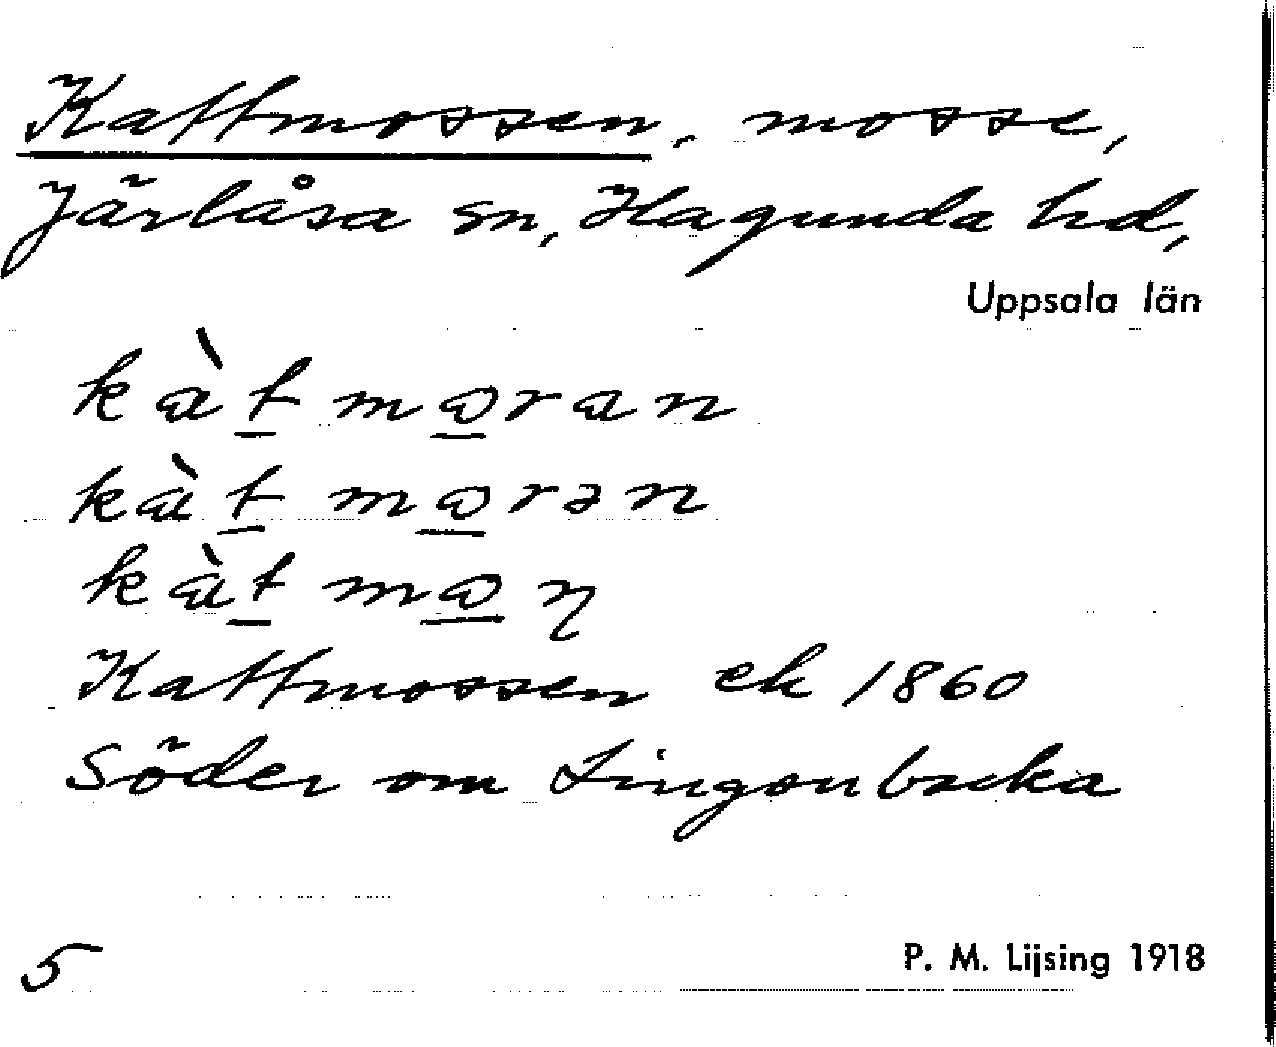 Kattmossen, mosse,
Järlåsa sn, Hagunda hd,
Uppsala län
kàt̲ mɷ̲ran
kàt̲ mɷ̲rən
kàt̲ mɷ̲ŋ
Kattmossen ek 1860
Söder om Lingonbacka
5
P. M. Lijsing 1918